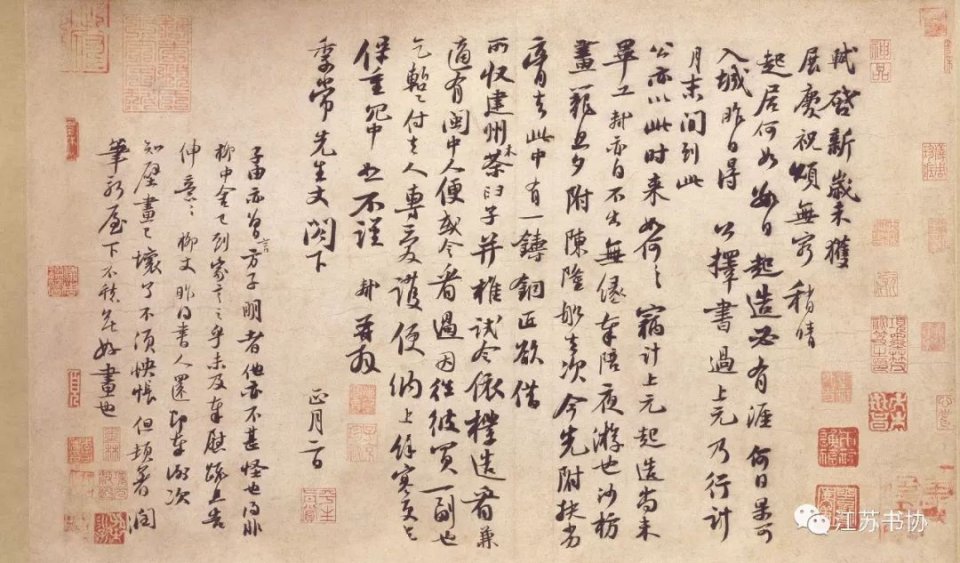 軾啓新歲未獲
展慶祝頌無窮稍晴
起居何如數日起造必有涯何日果可
入城昨日得公擇書過上元乃行計
月末間到此
公亦以此時来如何〻竊計上元起造尚未
畢工軾亦自不出無緣奉陪夜游也沙枋
畫籠旦夕附陳隆船去次今先附扶劣
膏去此中有一鑄銅匠欲借
所收建州木茶臼子并椎試令依樣造看兼
適有閩中人便或令看過因往彼買一副也
乞暫付去人專愛護便納上餘寒更乞
保重冗中恕不謹軾再拜
季常先生丈閣下
正月二日
子由亦曾言方子明者他亦不甚怪也得非
柳中舍已到家言之乎未及奉慰疏且告
伸意〻柳丈昨得書人還即奉謝次
知壁畫已壞了不須怏悵但頓著潤
筆新屋下不愁無好畫也
江苏书协